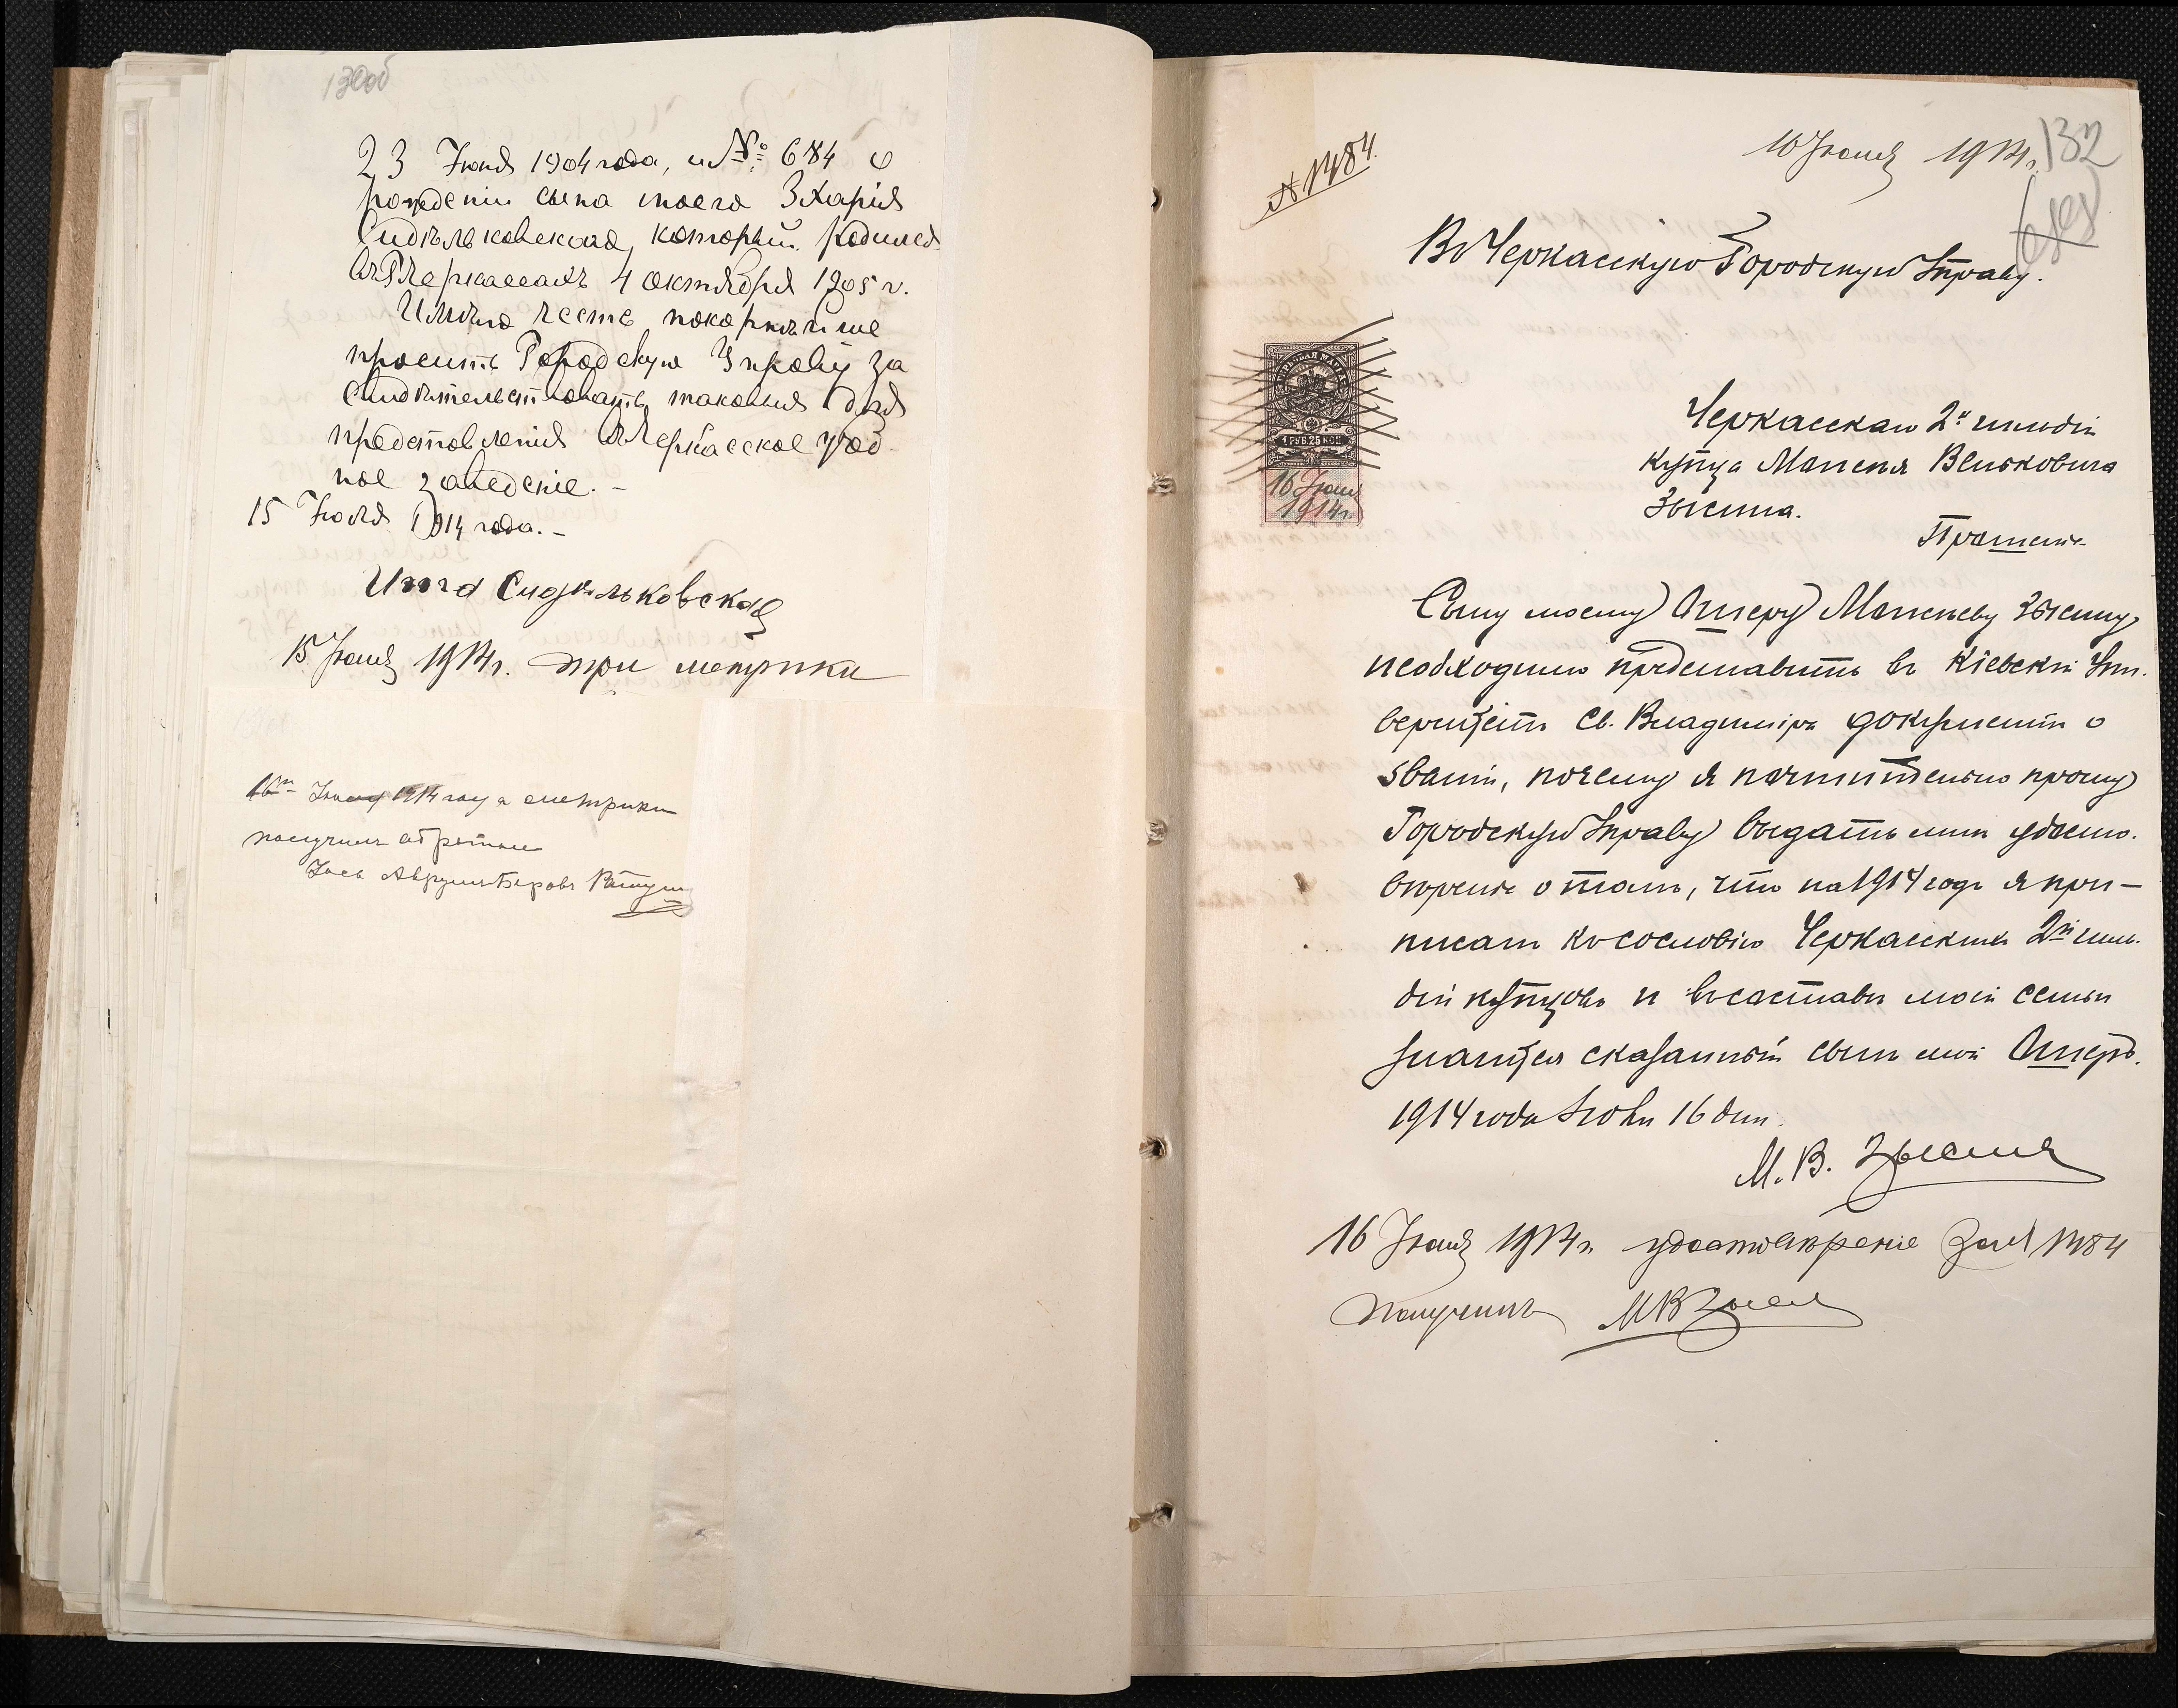 130об
23 Іюня 1904 года, и № 684 о
рожденіи сына моего Зхарія
Сидѣльковскага, который родился
въ г Черкассахъ 4 октября 1905 г.
Имѣю честь покорнѣйше
просить Городскую Управу за
свидѣтельствовать таковыя для
представленія въ Черкасское учеб
ное заведеніе. -
15 Іюля 1914 года. -
Сидѣльковская
15 Іюля 1914 г. три метрики
16го 1914 году метрики
получилъ обратно
Іось
132
16 Іюля 1914 г.
№ 1484.
Въ Черкасскую Городскую Управу.
ГЕРБОВАЯ МАРКА
1 РУБ. 25 КОП
16 Іюля
1914 г.
Черкасскаго 2й гильдіи
купца Манеля Вельковича
Зысина.
Прошеніе
Сыну моему Ошеру Манелеву Зысину,
необходимо представить въ Кіевскій Уни-
верситетъ Св. Владиміра документъ о
званіи, почему я почтительно прошу
Городскую Управу выдать мнѣ удосто-
вѣреніе о томъ, что на 1914 годъ я при-
писанъ къ сословію Черкасскихъ 2й гиль-
діи купцовъ и въ составѣ моей семьи
значится сказанный сынъ мой Ошеръ.
1914 года Іюля 16 дня.
М. В. Зысинъ
16 Іюля 1914 г. удостовѣреніе за № 1484
получилъ МВЗысин